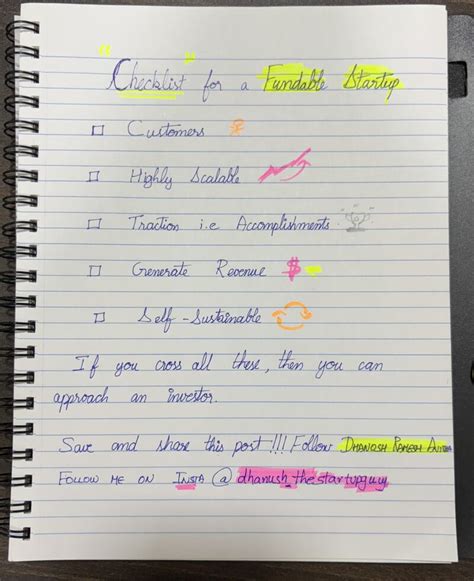 "Checklist for a Fundable Startup"
Customers
Highly Scalable
Traction i.e Accomplishments
Generate Revenue $
Self-Sustainable
If you cross all these, then you can
approach an investor.
Save and share this post!!! Follow Dhanush Ramesh
Follow me on Insta @dhanush_thestartupguy